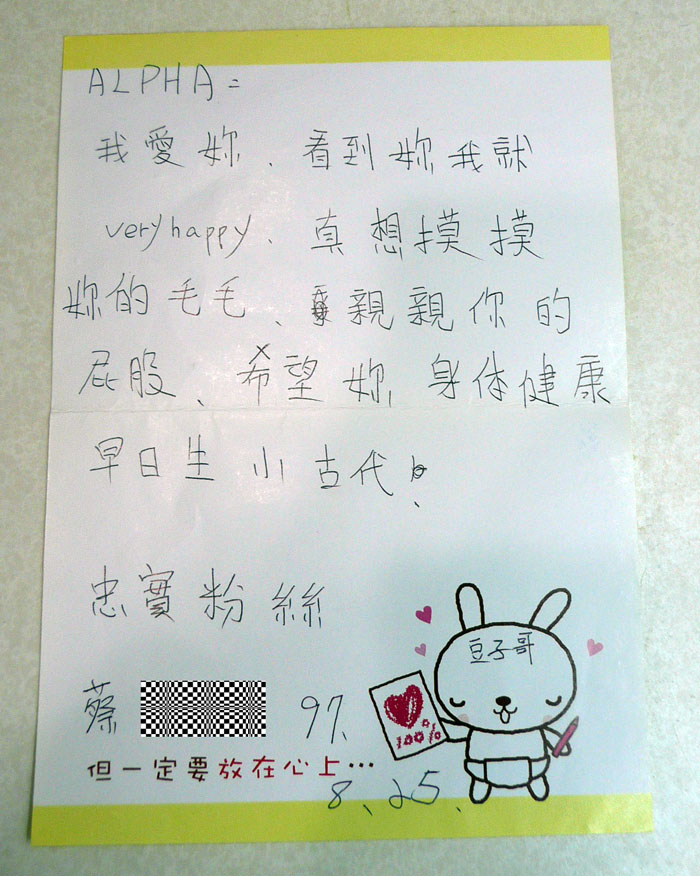 ALPHA=
我愛妳、看到妳我就
very happy、真想摸摸
妳的毛毛、親親你的
屁股、希望妳身体健康
早日生小古代!
忠實粉絲
蔡 97、
豆子哥
100%
但一定要放在心上…
8、25、